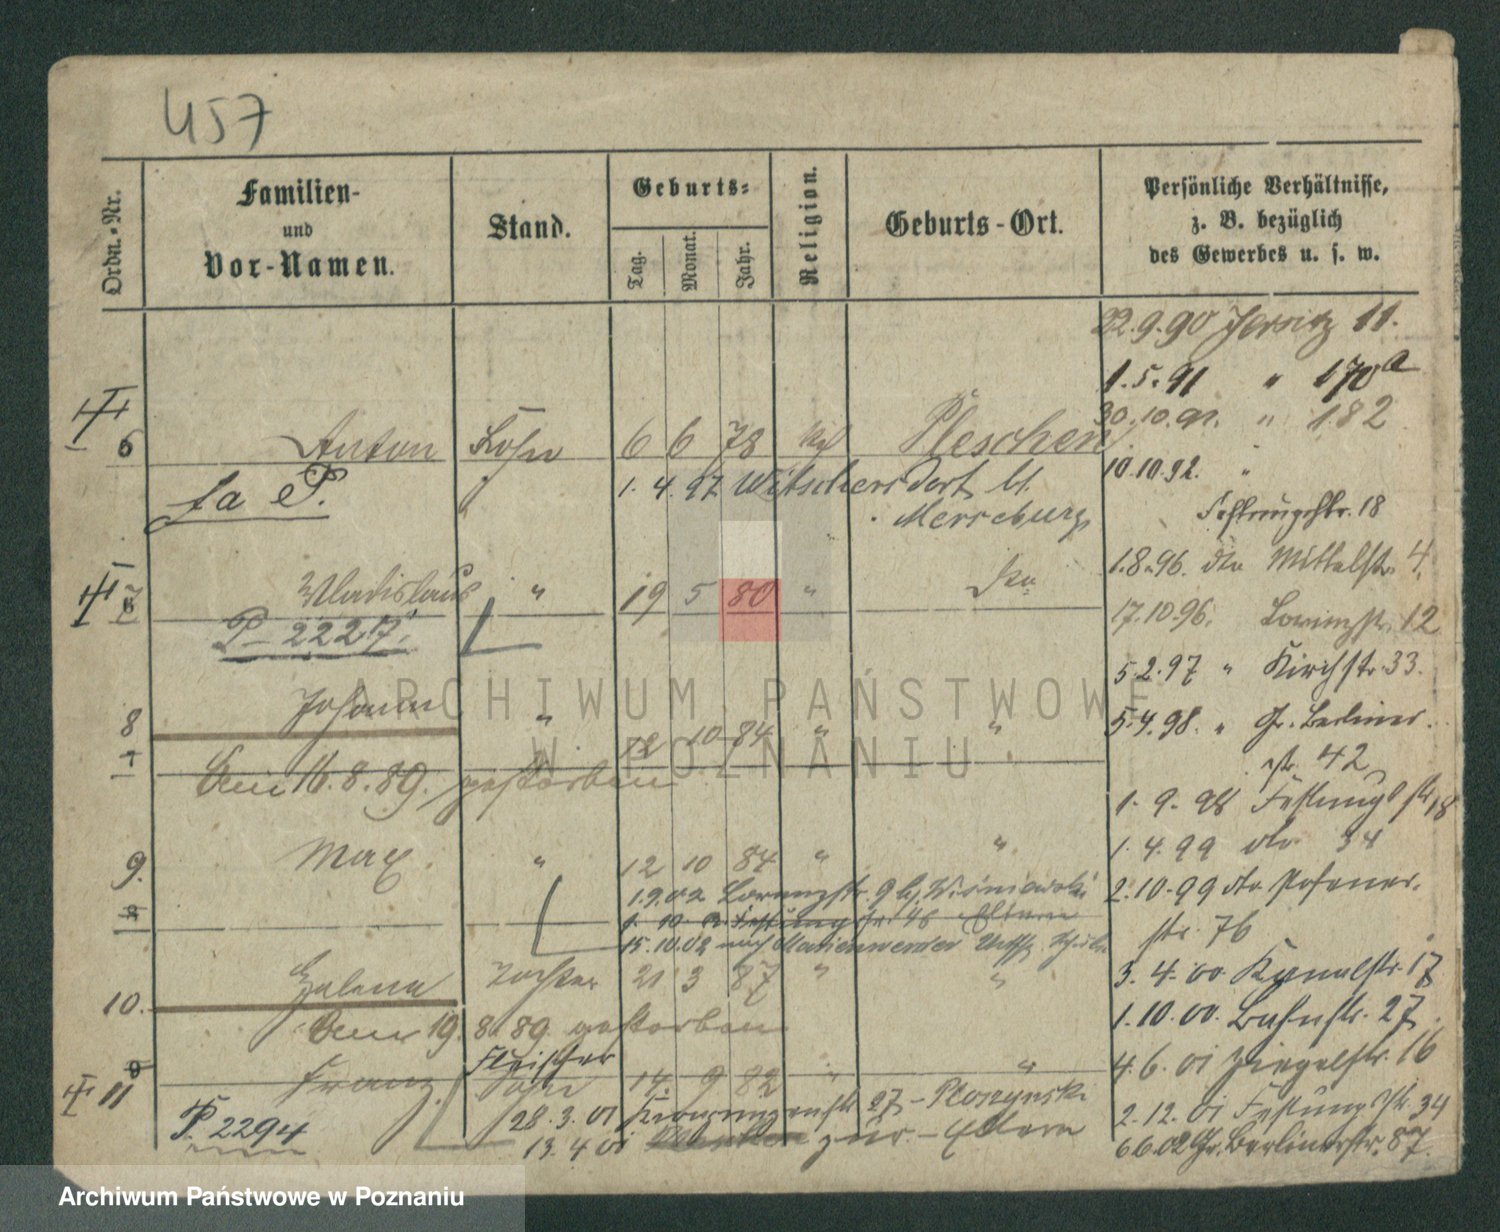 457
Ordn.-Nr.
Familien-
und
Vor-Namen.
Stand.
Geburts-
Tag.
Monat.
Jahr.
Religion.
Geburts-Ort.
Persönliche Verhältnisse,
z. B. bezüglich
des Gewerbes u. s. w.
22.9.90 Jersitz 11.
1.5.91 " 170a
30.10.91. " 182
6 Anton Sohn 6 6 78 Pleschen
10.10.92. "
1.4.97 bt.
Merseburg
Festungsstr. 18
1.8.96. Mittelstr. 4.
Wladislaus " 19 5 80 " do
17.10.96. 12
P 2227.
5.2.97 " Kirchstr. 33.
8 Johann " 12 10 84 " "
5.4.98. " Gr. Berliner
str. 42
Am 16.8.89. gestorben
1.9.98 Festungsstr. 18
9. Max. " 12 10 84 " "
1.4.99 do 34
1.9.02 Lorenzstr. 9 b. Wisniewski
2.10.99 Posener-
1.10. Festungsstr. 48 Eltern
str. 76
15.10.02 nach Marienwerder
10. Helena Tochter 21 3 87 " "
3.4.00 Kanalstr. 17
Am 19.8.89. gestorben
1.10.00. Bahnstr. 27.
Fleischer
11 Franz Sohn 14. 9 82 " "
4.6.01 Ziegelstr. 16
P. 2294
28.3.01 27 - Ploszynski
2.12.01 Festungsstr. 34
13.4.01 zur. - Eltern
6.6.02 Gr. Berlinerstr. 87.
ARCHIWUM PAŃSTWOWE
W POZNANIU
Archiwum Państwowe w Poznaniu